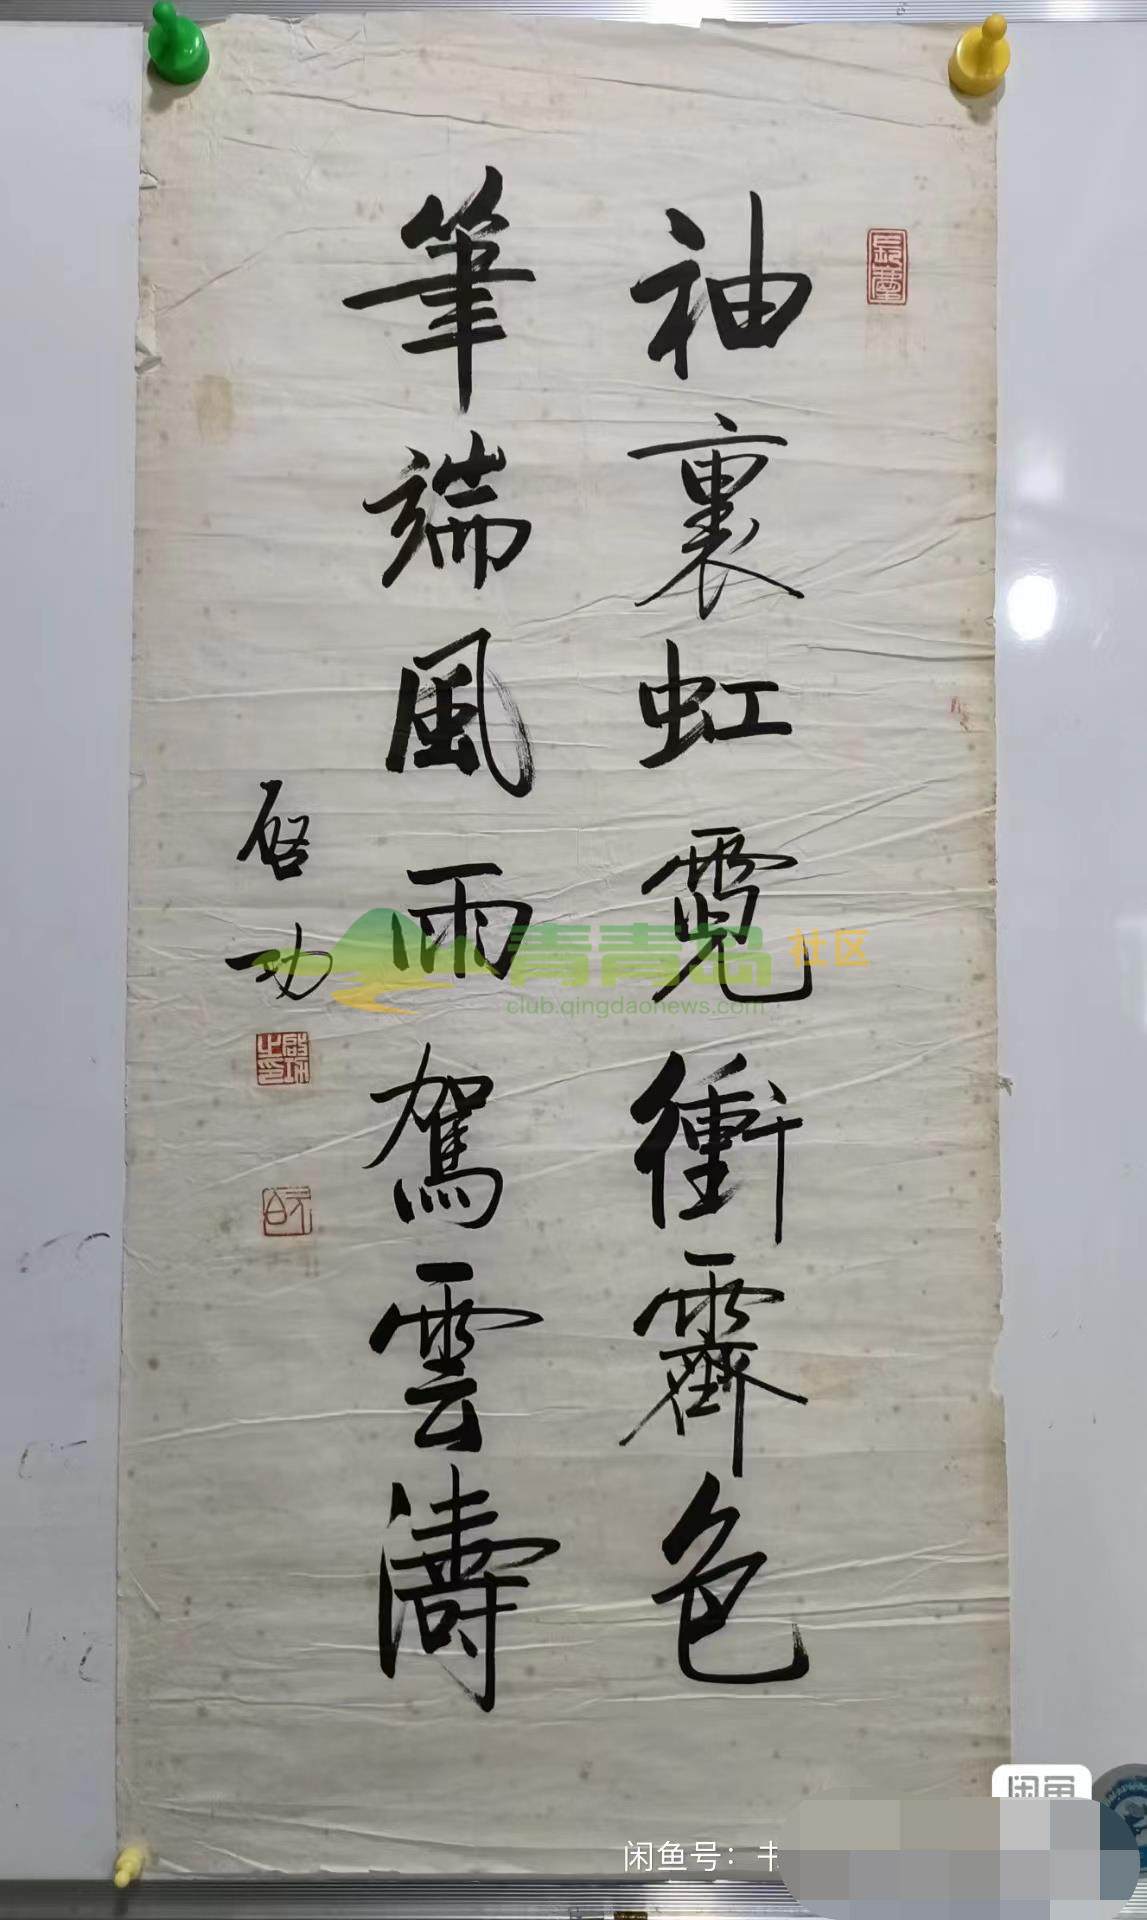 袖裏虹霓衝霽色
筆端風雨駕雲濤
啓功
啟功之印
元白
青青岛社区
club.qingdaonews.com
闲鱼
闲鱼号：书